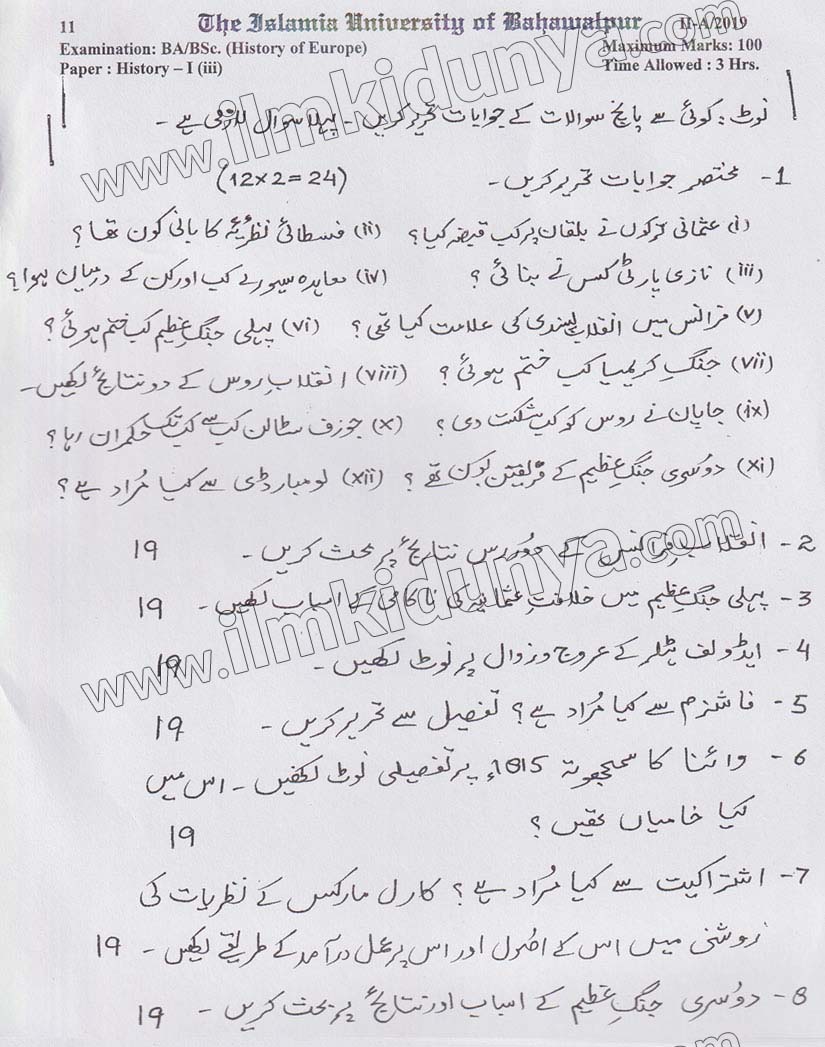 11 The Islamia University of Bahawalpur II-A/2019
Examination: BA/BSc. (History of Europe) Maximum Marks: 100
Paper : History – I (iii) Time Allowed : 3 Hrs.
نوٹ: کوئی سے پانچ سوالات کے جوابات تحریر کریں۔ پہلا سوال لازمی ہے۔
1- مختصر جوابات تحریر کریں۔ (12×2=24)
(i) عثمانی ترکوں نے بلقان پر کب قبضہ کیا؟ (ii) فسطائی نظریئے کا بانی کون تھا؟
(iii) نازی پارٹی کس نے بنائی؟ (iv) معاہدہ سیورے کب اور کن کے درمیان ہوا؟
(v) فرانس میں انقلاب پسندی کی علامت کیا تھی؟ (vi) پہلی جنگِ عظیم کب ختم ہوئی؟
(vii) جنگِ کریمیا کب ختم ہوئی؟ (viii) انقلابِ روس کے دو نتائج لکھیں۔
(ix) جاپان نے روس کو کب شکست دی؟ (x) جوزف سٹالن کب سے کب تک حکمران رہا؟
(xi) دوسری جنگِ عظیم کے فریقین کون تھے؟ (xii) لومبارڈی سے کیا مُراد ہے؟
2- انقلابِ فرانس کے دوررس نتائج پر بحث کریں۔ 19
3- پہلی جنگِ عظیم میں خلافتِ عثمانیہ کی ناکامی کے اسباب لکھیں۔ 19
4- ایڈولف ہٹلر کے عروج و زوال پر نوٹ لکھیں۔ 19
5- فاشزم سے کیا مُراد ہے؟ تفصیل سے تحریر کریں۔ 19
6- وائنا کا سمجھوتہ 1815ء پر تفصیلی نوٹ لکھیں۔ اس میں
کیا خامیاں تھیں؟ 19
7- اشتراکیت سے کیا مُراد ہے؟ کارل مارکس کے نظریات کی
روشنی میں اس کے اصُول اور اس پر عمل درآمد کے طریقے لکھیں۔ 19
8- دوسری جنگِ عظیم کے اسباب اور نتائج پر بحث کریں۔ 19
www.ilmkidunya.com
www.ilmkidunya.com
www.ilmkidunya.com